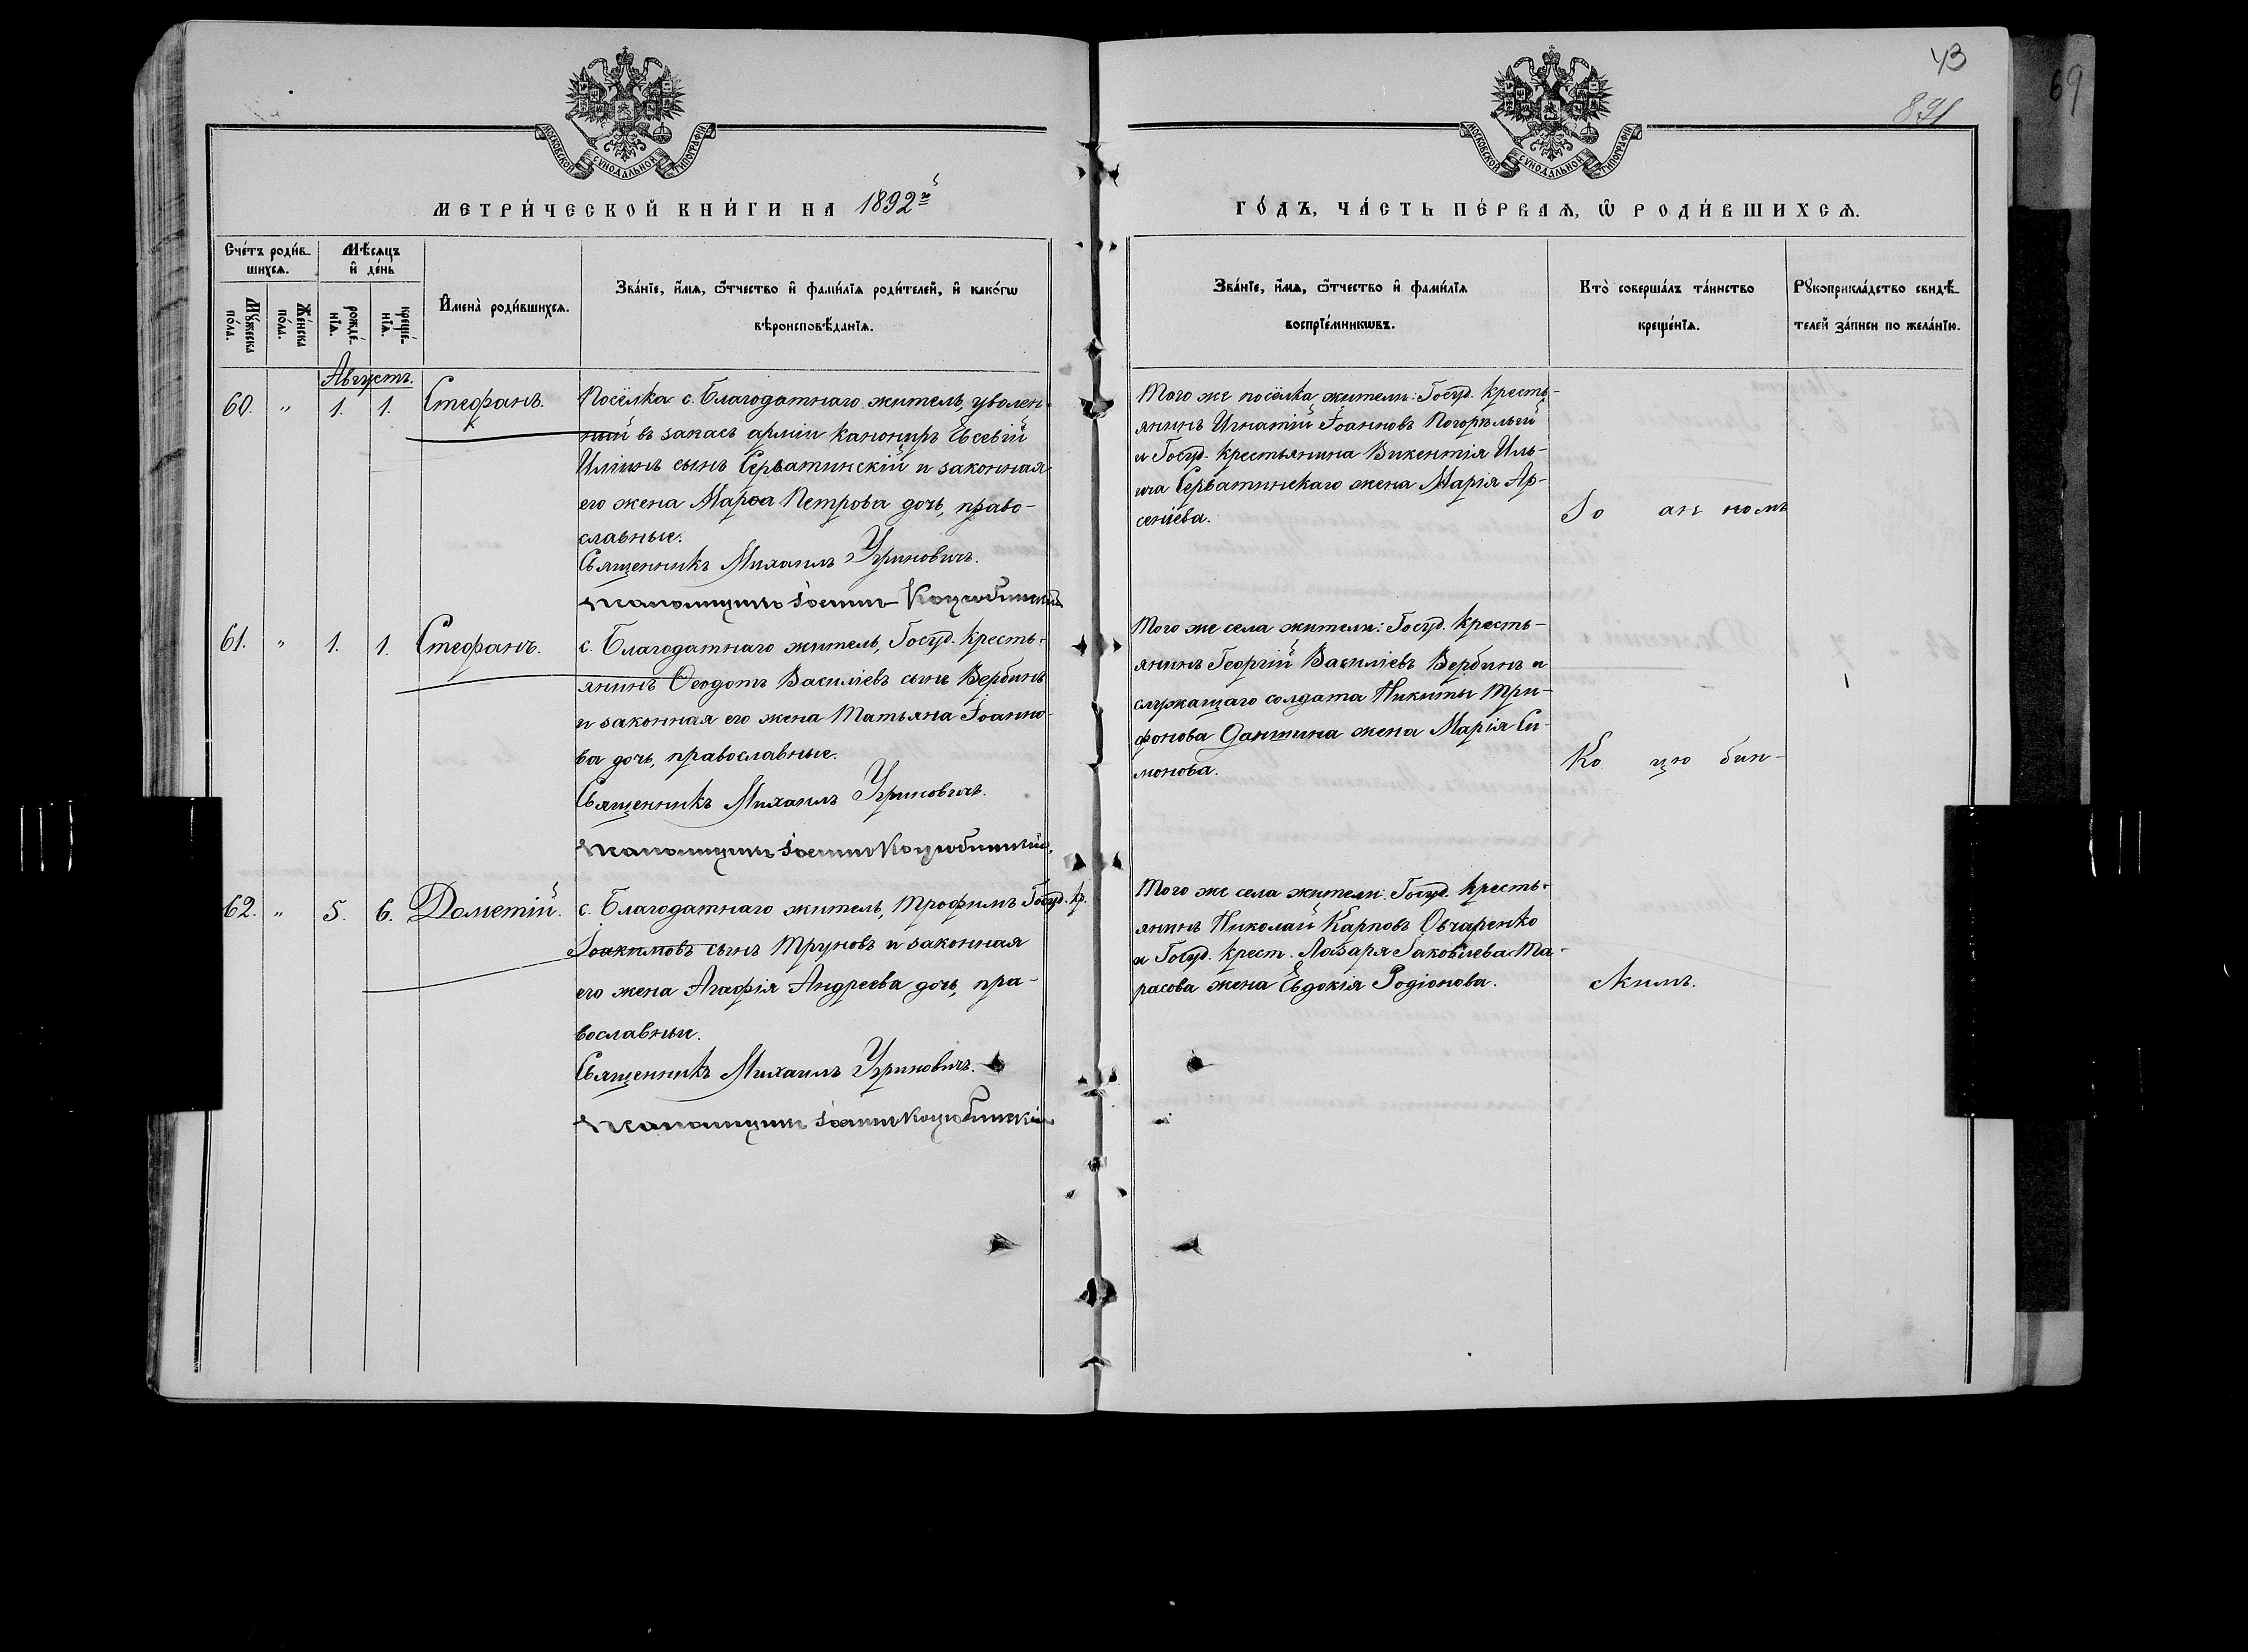 43
69
891
МОСКОВСКОЙ СѴНОДАЛЬНОЙ ТИПОГРАФІИ
МОСКОВСКОЙ СѴНОДАЛЬНОЙ ТИПОГРАФІИ
МЕТРИ́ЧЕСКОЙ КНИ́ГИ НА 1892й
ГО́ДЪ, ЧА́СТЬ ПЕ́РВАѦ, Ѡ РОДИ́ВШИХСѦ.
Сче́тъ роди́в-
шихсѧ.
Мѣ́сѧцъ
и҆ де́нь
Мꙋ́жеска
по́ла.
Же́нска
по́ла.
рожде́-
нїѧ.
креще́-
нїѧ.
И҆мена̀ роди́вшихсѧ.
Зва́нїе, и҆́мѧ, ѻ҆́тчество и҆ фами́лїѧ роди́телей, и҆ како́гѡ
вѣроисповѣ́данїѧ.
Зва́нїе, и҆́мѧ, ѻ҆́тчество и҆ фами́лїѧ
воспрїе́мникѡвъ.
Кто̀ соверша́лъ та́инство
креще́нїѧ.
Рꙋкоприкла́дство свидѣ́-
телей за́писи по жела́нїю.
Августъ.
60. " 1. 1. Стефанъ.
Посёлка с. Благодатнаго житель, уволен-
ный въ запасъ арміи Канониръ Евсевій
Иліинъ сынъ Серватинскій и законная
его жена Марѳа Петрова дочь, право-
славные.
Священникъ Михаилъ Угриновичъ.
Псаломщикъ Іоаннъ Коцюбинскій
Того же посёлка жители: Госуд. кресть-
янинъ Игнатій Іоанновъ Погорѣлый
и Госуд. крестьянина Викентія Иль-
ича Серватинскаго жена Марія Ар-
сеніева.
Іо ан номъ
61. " 1. 1. Стефанъ.
с. Благодатнаго житель, Госуд. кресть-
янинъ Ѳеодотъ Василіевъ сынъ Вербинъ
и законная его жена Татьяна Іоанно-
ва дочь, православные.
Священникъ Михаилъ Угриновичъ.
Псаломщикъ Іоаннъ Коцюбинскій.
Того же села жители: Госуд. кресть-
янинъ Георгій Василіевъ Вербинъ и
служащаго солдата Никиты Три-
фонова жена Марія Си-
монова.
Ко цю бин-
62. " 5. 6. Дометій.
с. Благодатнаго житель, Трофимъ Госуд. кр.
Іоакимовъ сынъ Труновъ и законная
его жена Агафія Андреева дочь, пра-
вославные.
Священникъ Михаилъ Угриновичъ.
Псаломщикъ Іоаннъ Коцюбинскій
Того же села жители: Госуд. кресть-
янинъ Николай Карповъ Овчаренко
и Госуд. крест. Лазаря Іаковлева Та-
расова жена Евдокія Родіонова.
скимъ.